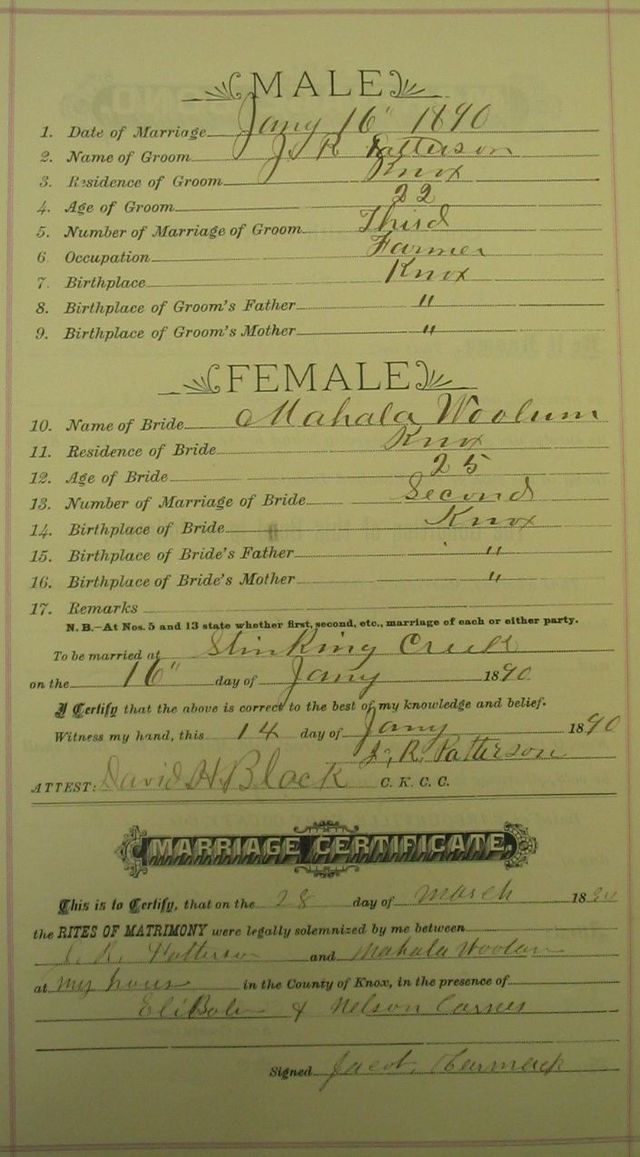 MALE
1. Date of Marriage Jany 16" 1890
2. Name of Groom J. R Patterson
3. Residence of Groom Knox
4. Age of Groom 22
5. Number of Marriage of Groom Third
6 Occupation Farmer
7. Birthplace Knox
8. Birthplace of Groom's Father "
9. Birthplace of Groom's Mother "
FEMALE
10. Name of Bride Mahala Woolum
11. Residence of Bride Knox
12. Age of Bride 25
13. Number of Marriage of Bride Second
14. Birthplace of Bride Knox
15. Birthplace of Bride's Father "
16. Birthplace of Bride's Mother "
17. Remarks
N. B.—At Nos. 5 and 13 state whether first, second, etc., marriage of each or either party.
To be married at Stinking Creek
on the 16" day of Jany 1890
I Certify that the above is correct to the best of my knowledge and belief.
Witness my hand, this 14 day of Jany 1890
J. R. Patterson
ATTEST: David H. Black C. K. C. C.
MARRIAGE CERTIFICATE.
This is to Certify, that on the 28 day of March 1890
the RITES OF MATRIMONY were legally solemnized by me between
J. R. Patterson and Mahala Woolum
at my hous in the County of Knox, in the presence of
Eli & Nelson Carnes
Signed Jacob